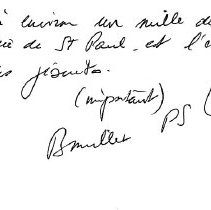 à environ un mille d
de St Paul, et l'
jésuites.
(important)
PS (